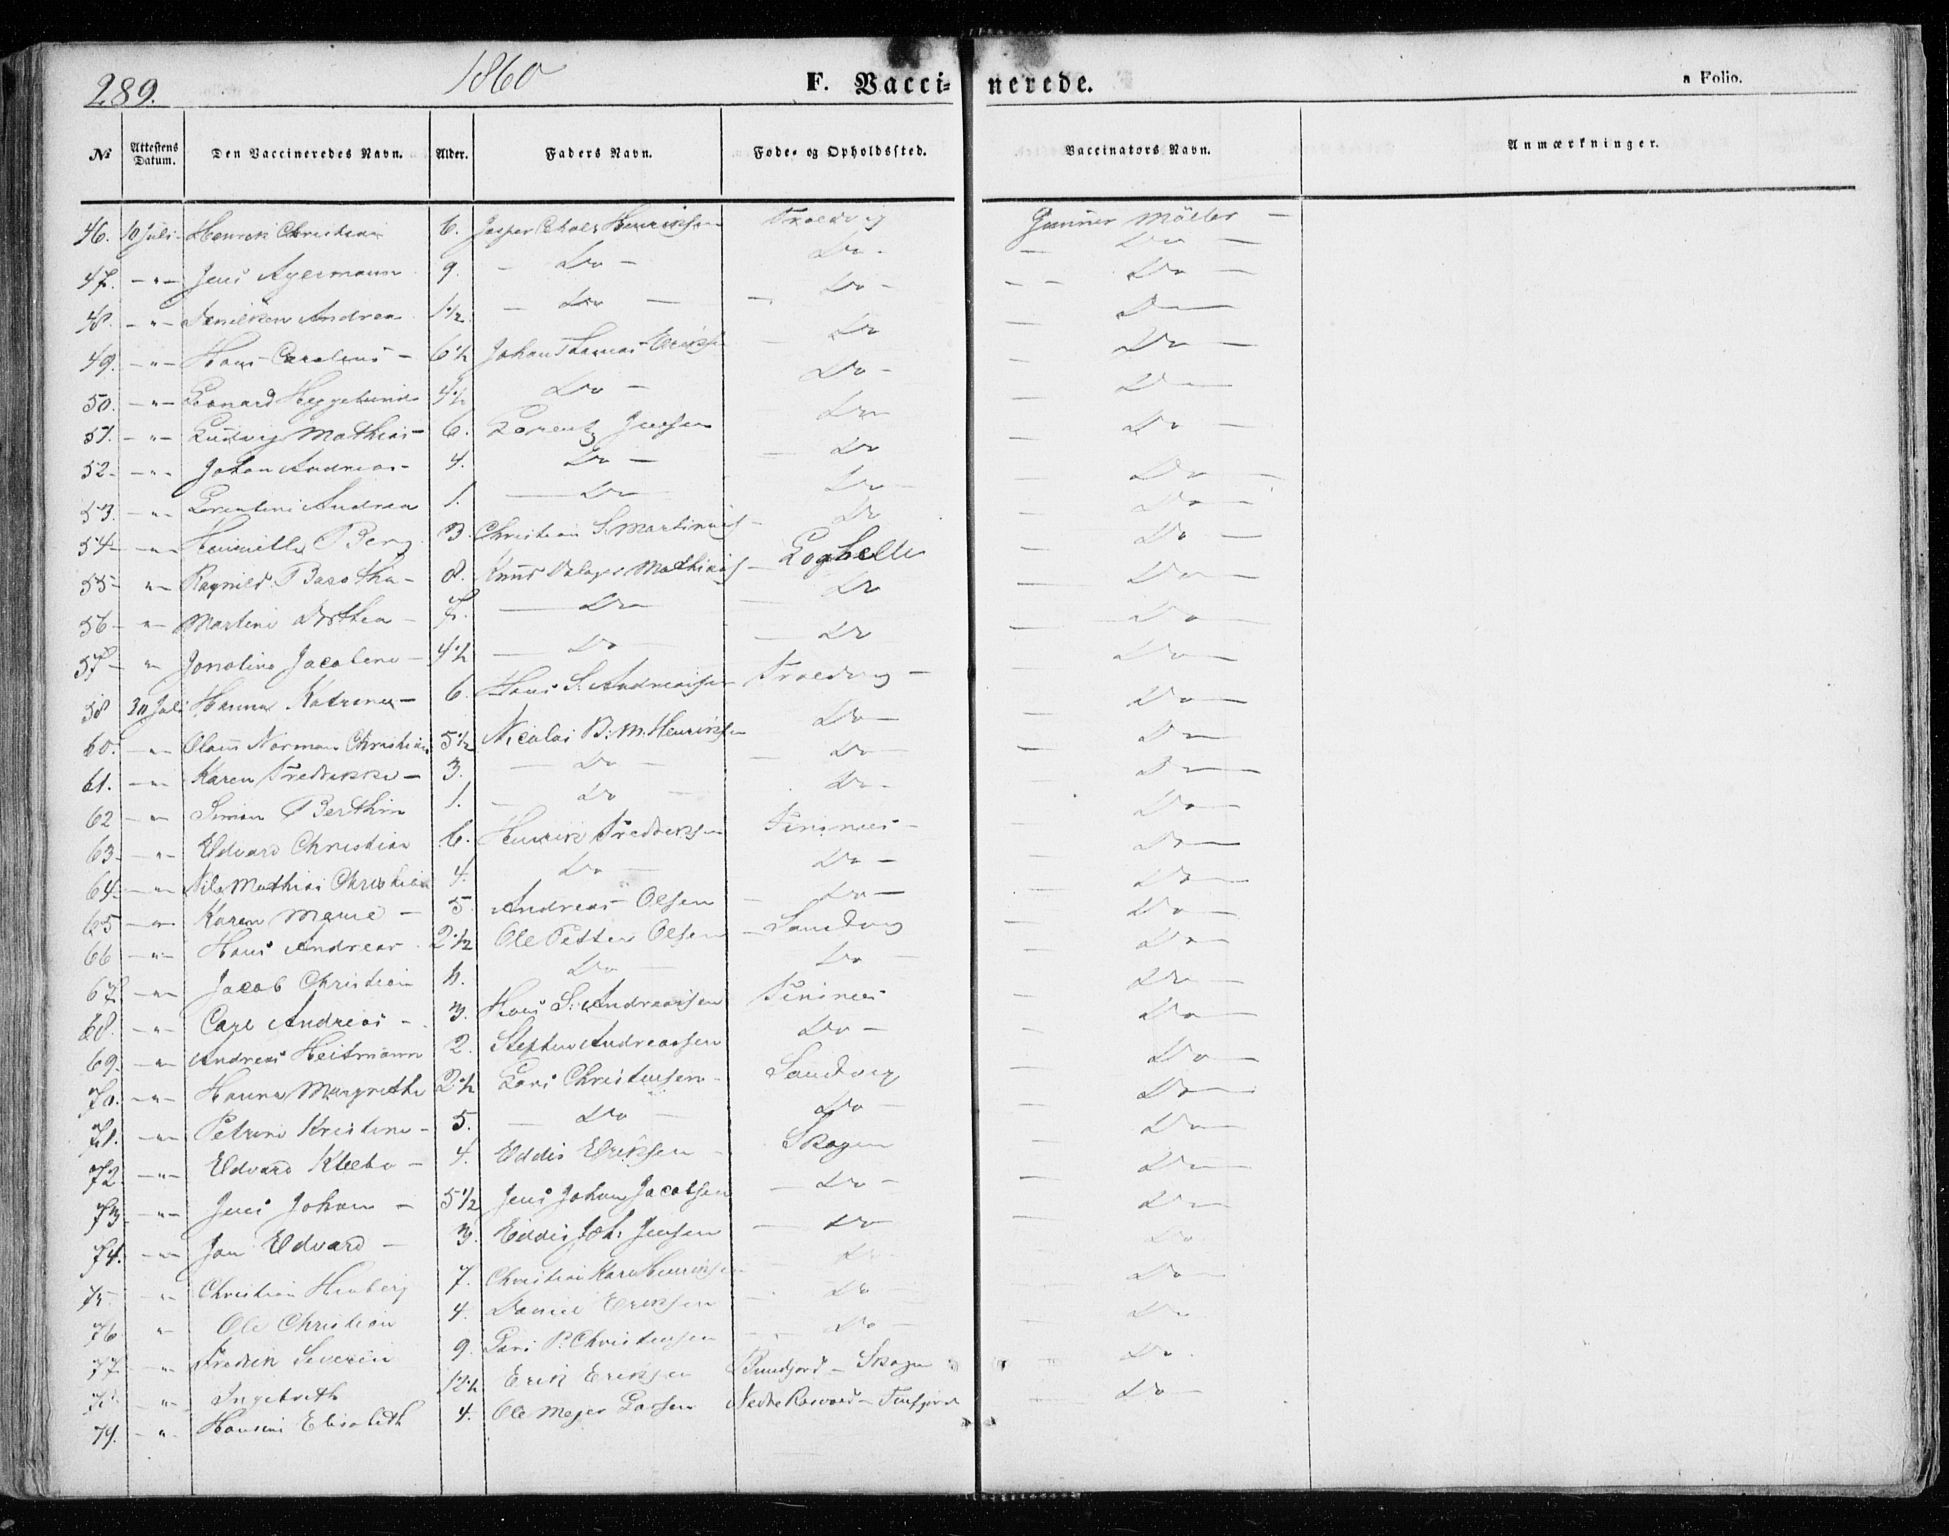 289. 1860 F. Vaccinerede. a Folio.
No Attestens Datum. Den Vaccineredes Navn. Alder. Faders Navn. Føde- og Opholdssted. Vaccinators Navn. Anmærkninger.
46. 10 Juli Henrik Christian 6. Jesper Henriksen Troldvig Gunner Möller —
47. — " — Jens Agermann 9. — Do — Do — Do —
48. — " — Andrea 1 1/2 — Do — — Do — — Do —
49. — " — Hans Carolius — 6 1/2 Johan Thomas Eriks Do — Do —
50. — " — Leonard Heggelund 4 1/2 Do — Do — — Do —
51. — " — Ludvig Mathias — 6. Lorentz Jensen Do — Do —
52. — " — Johan Andreas — 4. Do — Do — Do —
53. — " — Lorentine Andrea 1. — Do Do — — Do —
54 — " — Berg 3. Christian S. Martinus — Do — Do —
55 — " — Ragnild Barotha — 8. Knud Mathias — Do —
56 — " — Martine Dorthea — 7. — Do — Do — Do —
57 — " Jonoline Jacobine — 4 1/2 — Do — — Do — Do —
58 30 Juli Hanna Katrine — 6. Hans S. Andreassen Troldvig — — Do —
60. — " — Olaus Norman Christian 5 1/2 Nicolai B. M. Henriksen Do — — Do —
61. — " — Karen Fredrikke — 3. — Do — — Do — — Do —
62 — " — Simon Berthin 1. — Do — Do — — Do —
63 — " — Edvard Christian 6. Henrik Fredriksen — Do —
64. — " — Nils Mathias Christian 4. Do — Do — — Do —
65 — " — Karen Marie — 5. Andreas Olsen — Do — — Do —
66 — " — Hans Andreas 2 1/2 Ole Petter Olsen — Sandvig — Do —
67. — " — Jacob Christian Do — Do — — Do —
68. — " — Carl Andreas — 3. Hans S. Andreassen — Do —
69. — " — Andreas Heitmann 2. Steffen Andreassen Do — — Do —
70. — " — Hanna Margrethe 2 1/2 Lars Christensen — Sandvig — Do —
71. — " — Petrine Kristine — 5. — Do — Do — — Do —
72 — " — Edvard Kleebo — 4. Eddis Eriksen — Skogen — Do —
73 — " — Jens Johan — 5 1/2 Jens Johan Jacobsen — Do — — Do —
74. — " — Jon Edvard — 3. Eddis Joh. Jensen — Do Do
75 — " Christian 7. Christian Henriksen Do — — Do —
76 " — Ole Christian 4. Daniel Eriksen — Do — — Do
77 — " Fredrik Severin 9. Lars P. Christensen Do — — Do
78. — " — Ingebreth 12 1/2 Erik Eriksen — Skogen — Do —
79. — " Hansine Elisabeth 4. Ole Mejer Larsen Nedre